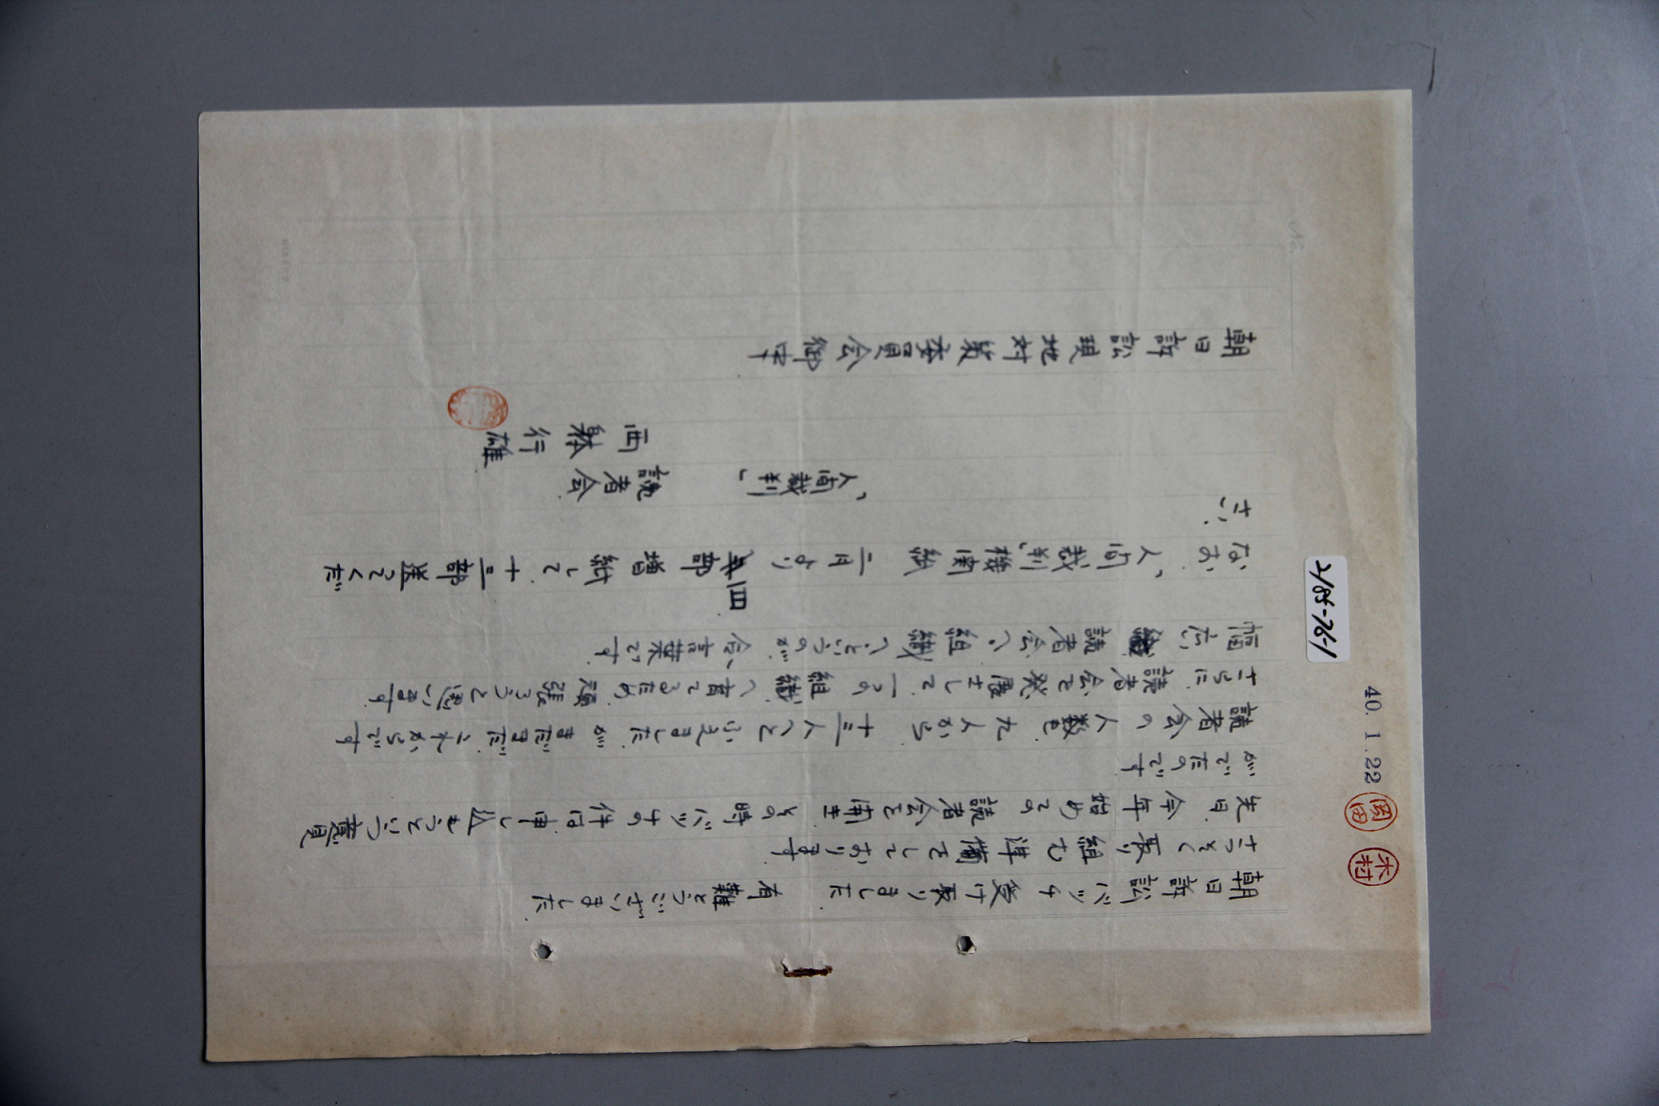 朝日訴訟バッヂ受け取りました 有難とうございました
さっそく取り組む準備をしております
先日、今年始めての読者会を開き その時バッヂの件は申し込もうという意見
がでたのです
読者会の人数も 九人から 十三人へと ふえましたが まだまだこれからです
さらに読者会を発展さして一つの組織へ育てるため 頑張ろうと思います
幅広い読者会へ、組織へ、というのが 合言葉です
なお、「人間裁判」機関紙 二月より 四部増紙して、十三部送ってくだ
さい、
「人間裁判」 読者会
西 行雄
朝日訴訟現地対策委員会御中
40.1.22
岡田
木村
2185-76-1